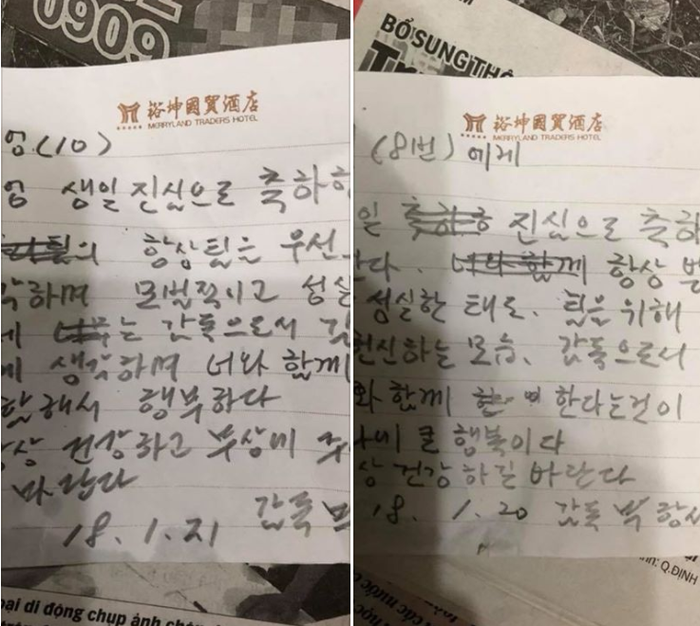 0909
裕坤國貿酒店
MERRYLAND TRADERS HOTEL
엉(10)
엉 생일 진심으로 축하하
의 항상 팀을 우선
각하며 모범적이고 성실
는 감독으로서
게 생각하며 너와 함께
함께해서 행복하다
상 건강하고 부상에
바란다
18. 1. 21 감독
oại di động chụp ảnh
BỔ SUNG THÔ
裕坤國貿酒店
MERRYLAND TRADERS HOTEL
(8번)에게
일 축하하 진심으로 축하
다. 너와 함께 항상
성실한 태도, 팀을 위해
헌신하는 모습, 감독으로서
와 함께 한다는것이
큰 행복이다
상 건강하길 바란다
18. 1. 20 감독 박항서
các nước
nh: Q.ĐỊNH